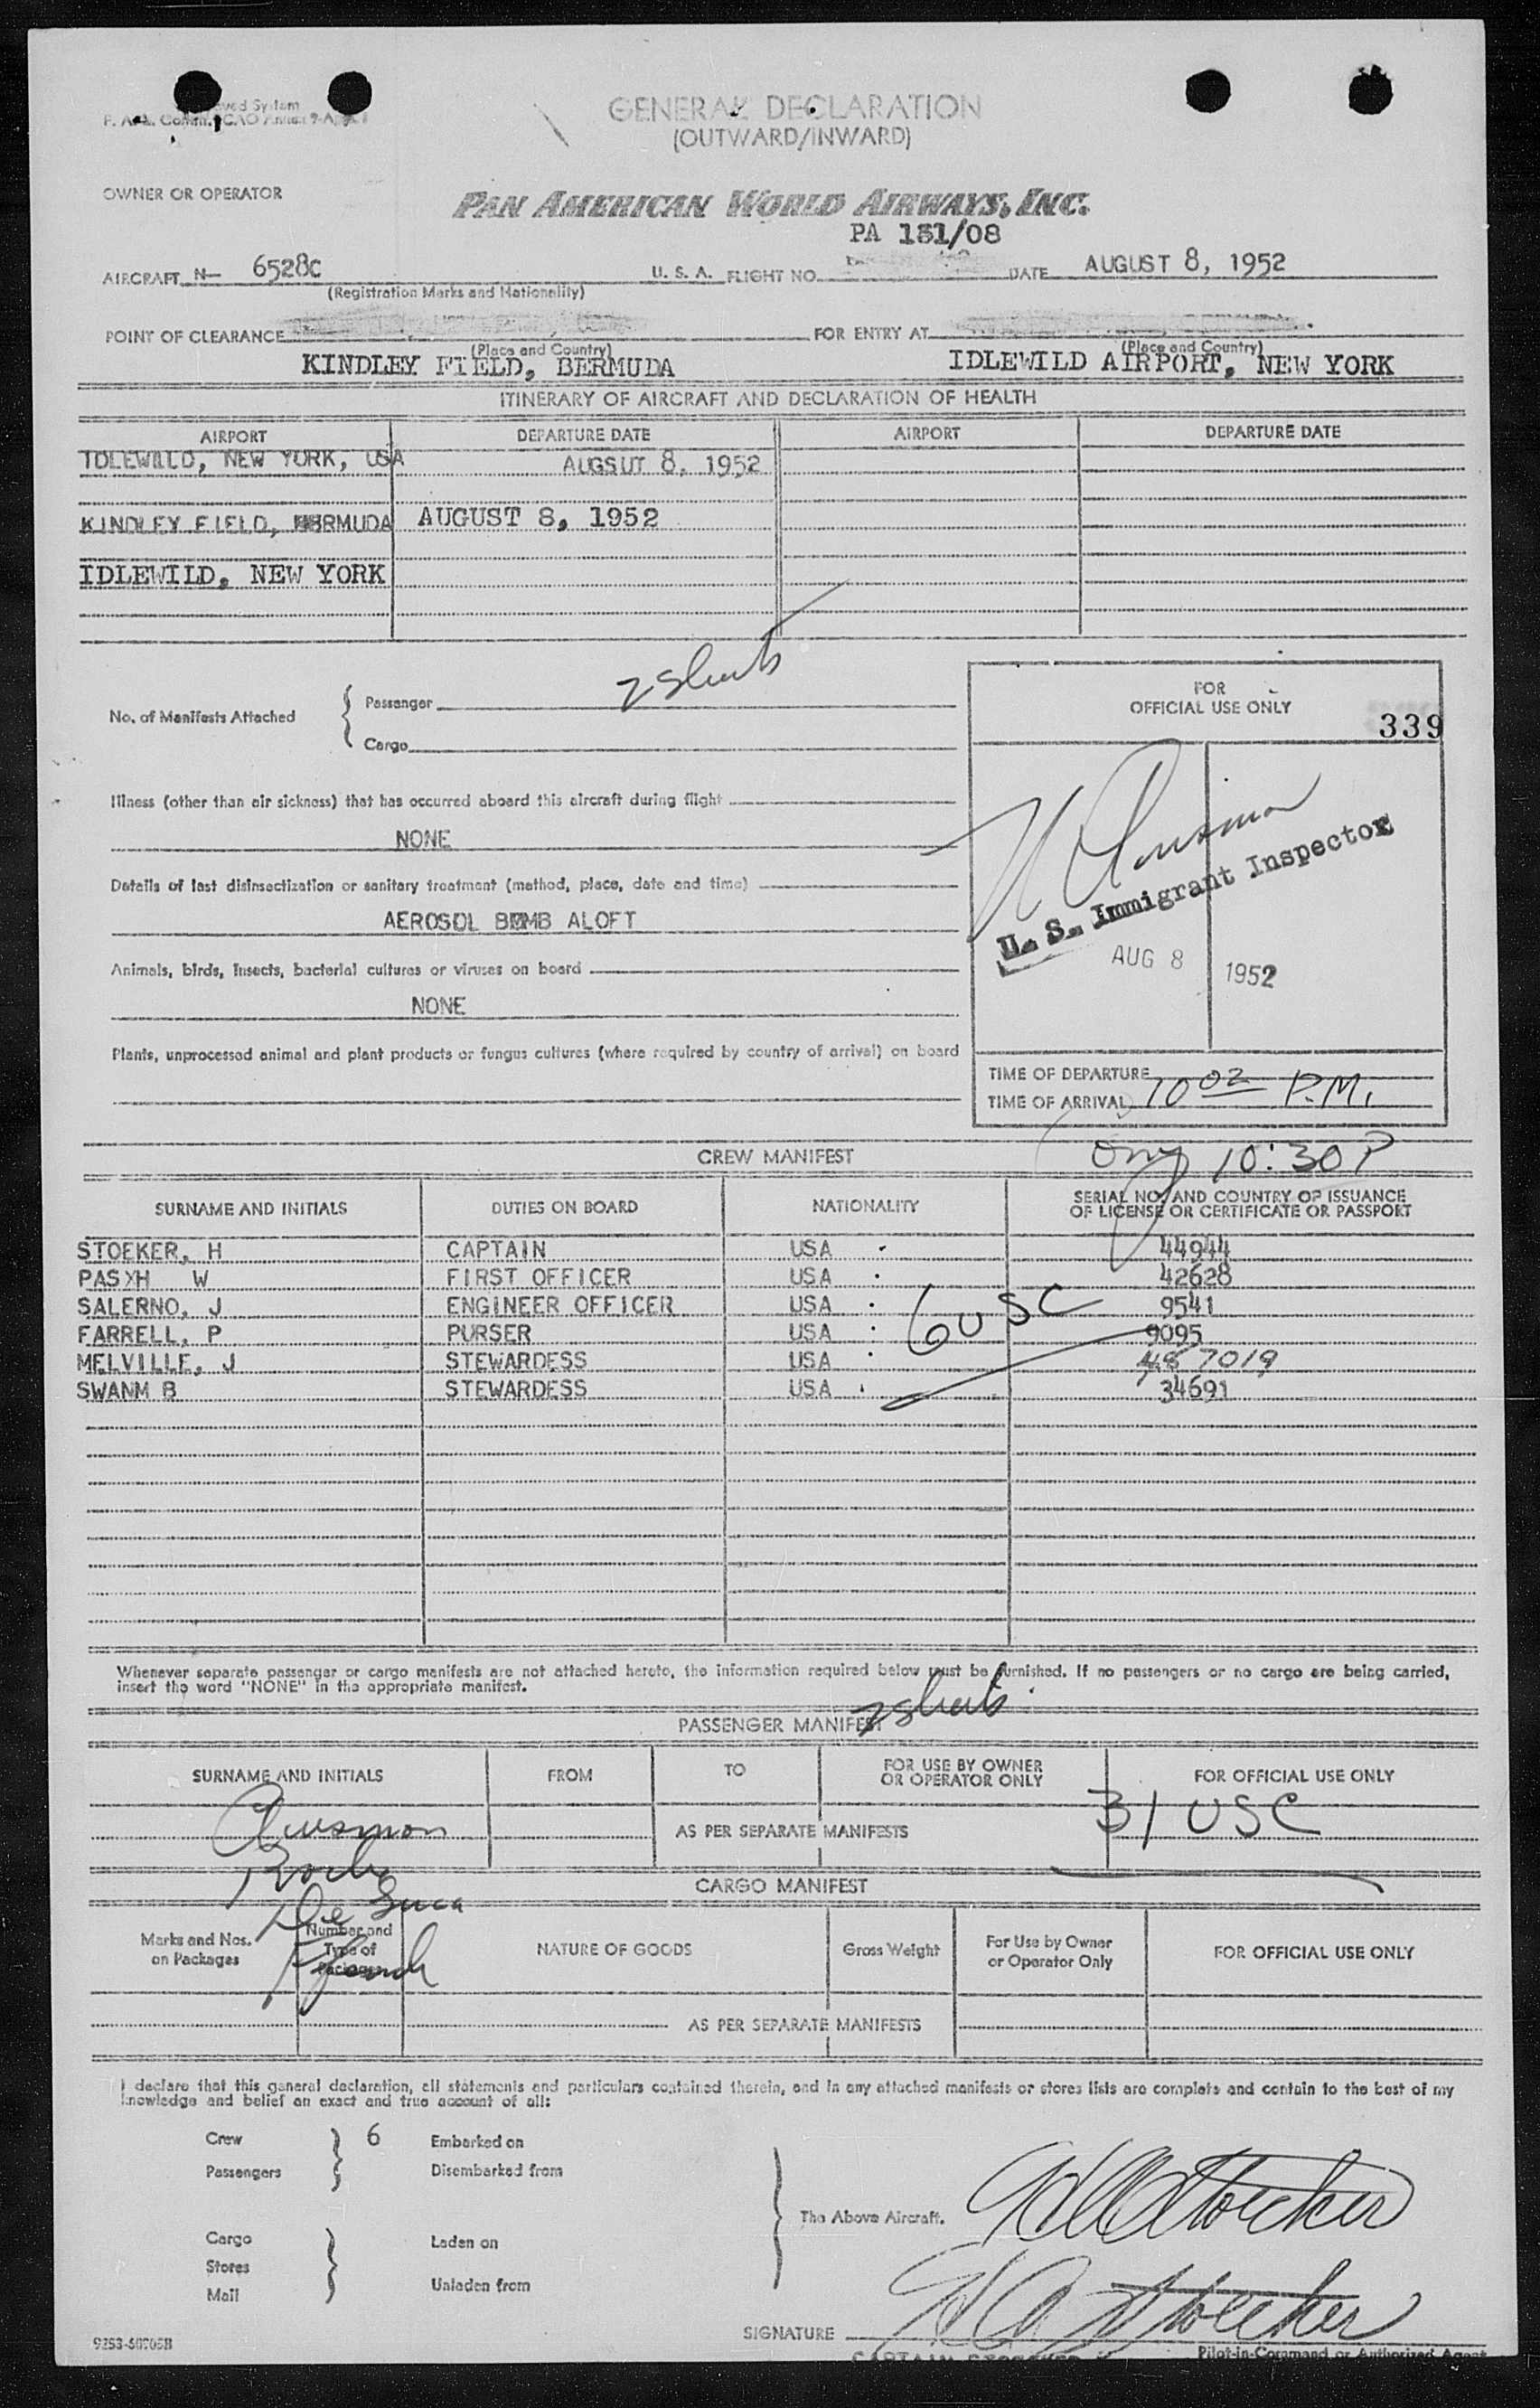 GENERAL DECLARATION
(OUTWARD/INWARD)
OWNER OR OPERATOR
PAN AMERICAN WORLD AIRWAYS, INC.
PA 151/08
AIRCRAFT N— 6528C U. S. A. FLIGHT NO. DATE AUGUST 8, 1952
(Registration Marks and Nationality)
POINT OF CLEARANCE FOR ENTRY AT
(Place and Country) (Place and Country)
KINDLEY FIELD, BERMUDA IDLEWILD AIRPORT, NEW YORK
ITINERARY OF AIRCRAFT AND DECLARATION OF HEALTH
AIRPORT DEPARTURE DATE AIRPORT DEPARTURE DATE
IDLEWILD, NEW YORK, USA AUGSUT 8, 1952
KINDLEY FIELD, BERMUDA AUGUST 8, 1952
IDLEWILD, NEW YORK
2 sheets
No. of Manifests Attached
Passenger
Cargo
FOR
OFFICIAL USE ONLY
339
Illness (other than air sickness) that has occurred aboard this aircraft during flight
NONE
Details of last disinsectization or sanitary treatment (method, place, date and time)
AEROSOL BOMB ALOFT
Animals, birds, insects, bacterial cultures or viruses on board
NONE
Plants, unprocessed animal and plant products or fungus cultures (where required by country of arrival) on board
U. S. Immigrant Inspector
AUG 8 1952
TIME OF DEPARTURE
TIME OF ARRIVAL 10 02 P.M.
10:30 P
CREW MANIFEST
SURNAME AND INITIALS DUTIES ON BOARD NATIONALITY SERIAL NO. AND COUNTRY OF ISSUANCE
OF LICENSE OR CERTIFICATE OR PASSPORT
STOEKER, H CAPTAIN USA 44944
PASYH W FIRST OFFICER USA 42628
SALERNO, J ENGINEER OFFICER USA 9541
FARRELL, P PURSER USA 9095
MELVILLE, J STEWARDESS USA 7019
SWANM B STEWARDESS USA 34691
6 USC
Whenever separate passenger or cargo manifests are not attached hereto, the information required below must be furnished. If no passengers or no cargo are being carried,
insert the word "NONE" in the appropriate manifest.
2 sheets
PASSENGER MANIFEST
SURNAME AND INITIALS FROM TO FOR USE BY OWNER
OR OPERATOR ONLY FOR OFFICIAL USE ONLY
AS PER SEPARATE MANIFESTS 31 USC
Roche
De Luca
CARGO MANIFEST
Marks and Nos.
on Packages
Number and
Type of
Packages
NATURE OF GOODS Gross Weight For Use by Owner
or Operator Only FOR OFFICIAL USE ONLY
AS PER SEPARATE MANIFESTS
I declare that this general declaration, all statements and particulars contained therein, and in any attached manifests or stores lists are complete and contain to the best of my
knowledge and belief an exact and true account of all:
Crew 6 Embarked on
Passengers Disembarked from
The Above Aircraft.
Cargo Laden on
Stores
Mail Unladen from
SIGNATURE H A Stoecker
Pilot-in-Command or Authorized Agent